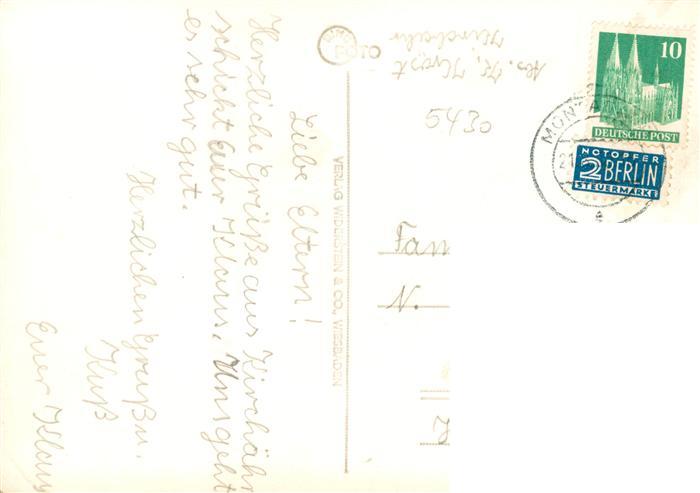 Liebe Eltern!
Herzliche Grüße aus Kirchähr
schickt euer Klaus. Uns geht
es sehr gut.
Herzlichen Gruß u.
Kuß
Euer Klaus
VERLAG WIDERSTEIN & CO., WIESBADEN
FOTO
Kirchähr
5430
10
DEUTSCHE POST
NOTOPFER
2 BERLIN
STEUERMARKE
MONTA
21
a
Fam
N.